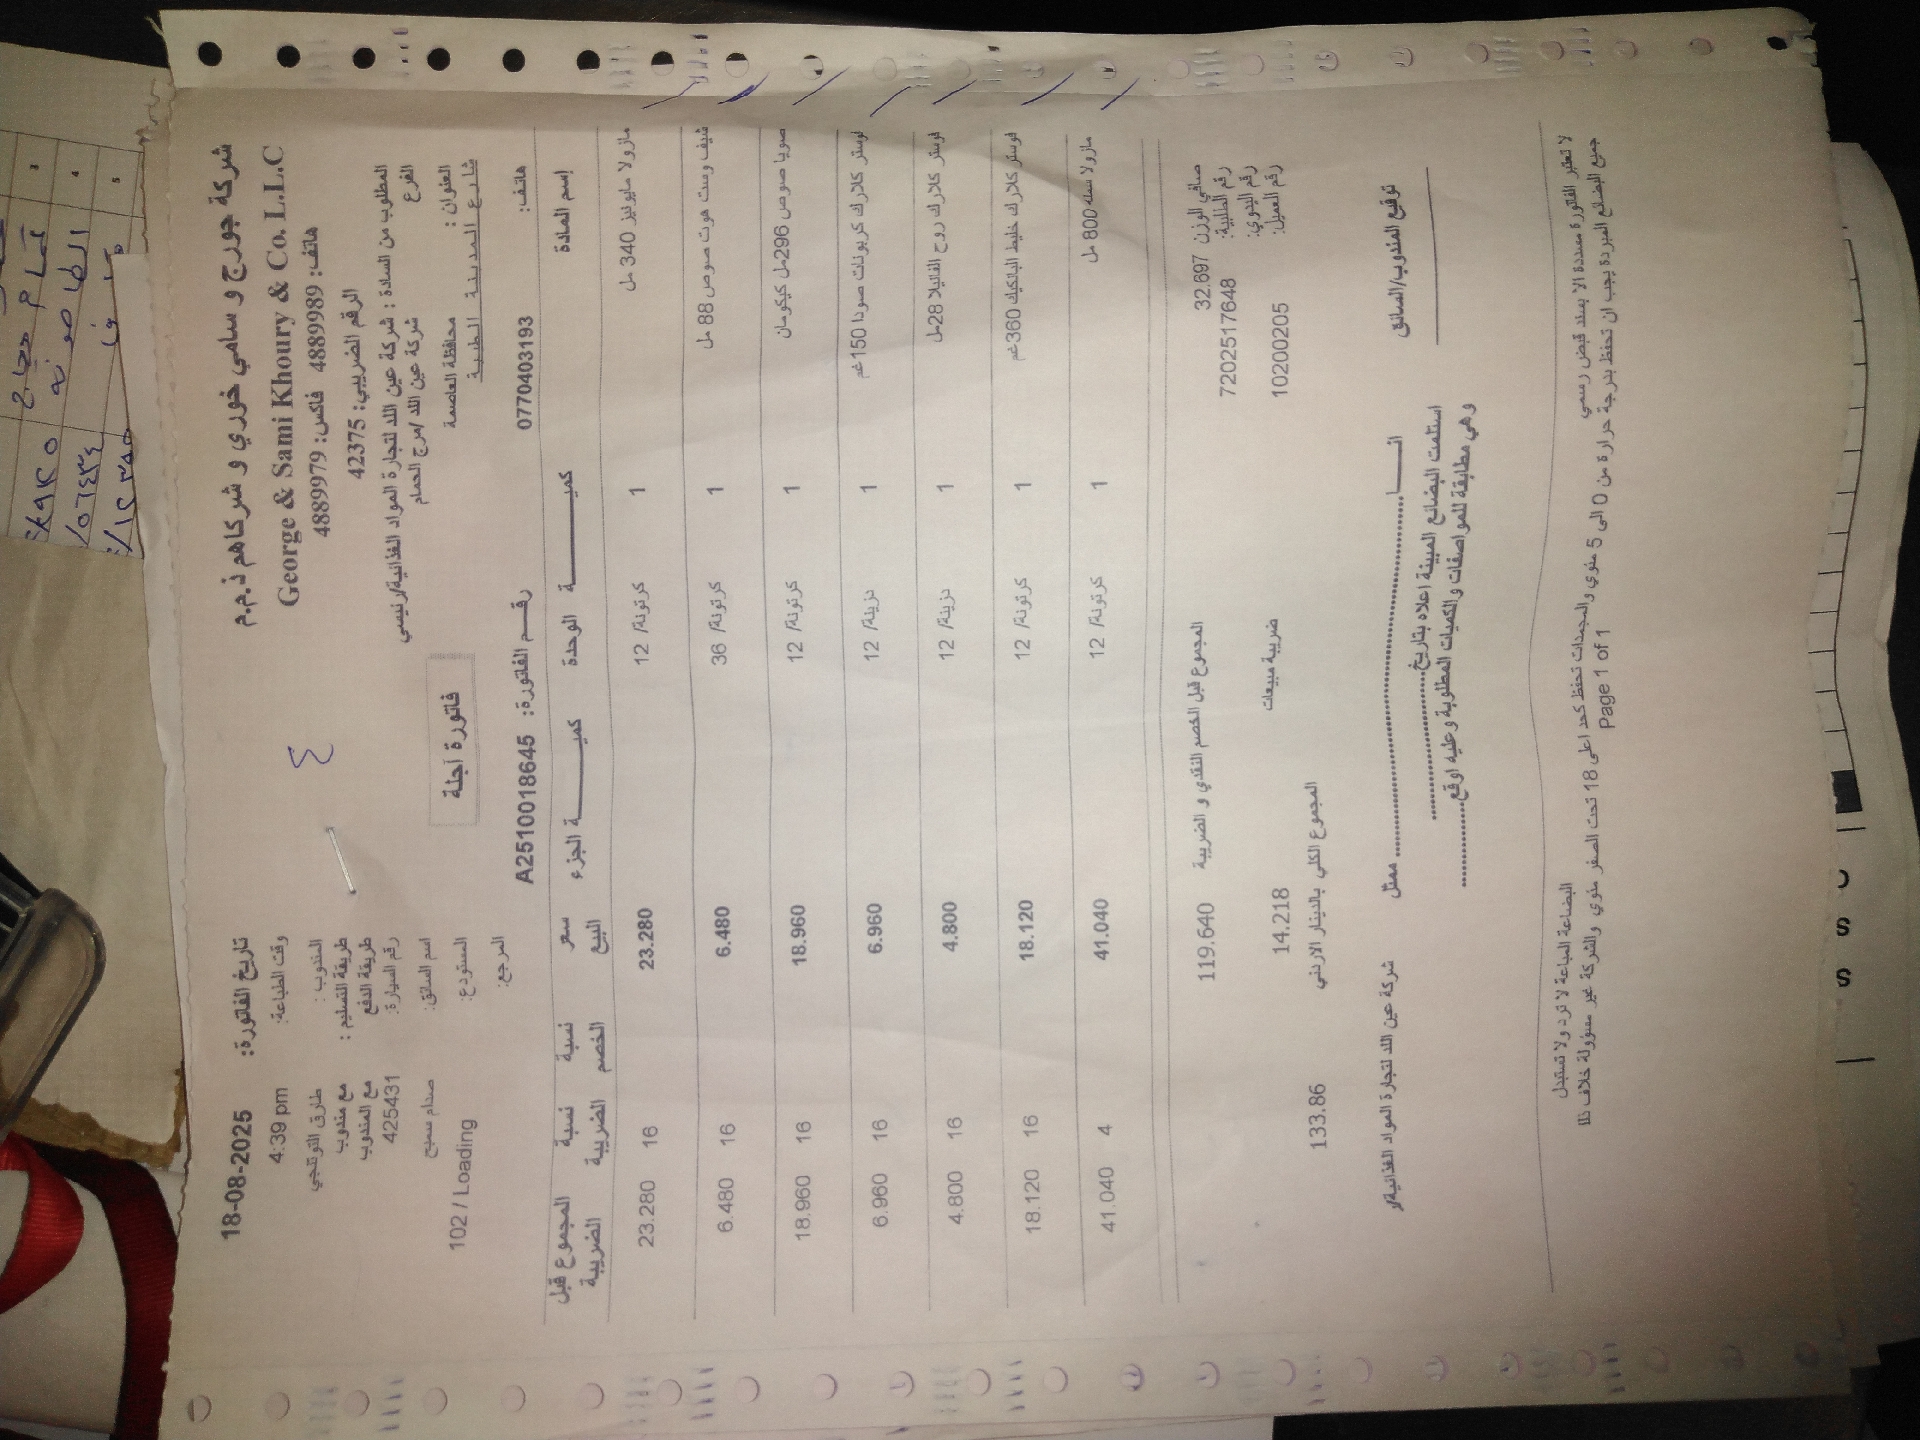 شركة جورج و سامي خوري و شركاهم ذ.م.م
George & Sami Khoury & Co. L.L.C
هاتف: 4889989 فاكس: 4889979
الرقم الضريبي: 42375
المطلوب من السادة : شركة عين اللد لتجارة المواد الغذائية/رئيسي
الفرع شركة عين اللد /مرج الحمام
العنوان : محافظة العاصمة
شارع المدينة الطبية
هاتف: 0770403193
٤
فاتورة آجلة
رقم الفاتورة: A2510018645
تاريخ الفاتورة: 18-08-2025
وقت الطباعة: 4:39 pm
المندوب : طارق التوتنجي
طريقة التسليم : مع مندوب
طريقة الدفع مع المندوب
رقم السيارة: 425431
اسم السائق: صدام سميح
المستودع: 102 / Loading
المرجع:
إسم المادة كميـــة الوحدة كميـــة الجزء سعر البيع نسبة الخصم نسبة الضريبة المجموع قبل الضريبة
مازولا مايونيز 340 مل 1 كرتونة/ 12 23.280 16 23.280
شيف ومت هوت صوص 88 مل 1 كرتونة/ 36 6.480 16 6.480
صويا صوص 296مل كيكومان 1 كرتونة/ 12 18.960 16 18.960
فوستر كلارك كربونات صودا 150غم 1 دزينة/ 12 6.960 16 6.960
فوستر كلارك روح الفانيلا 28مل 1 دزينة/ 12 4.800 16 4.800
فوستر كلارك خليط البانكيك 360غم 1 كرتونة/ 12 18.120 16 18.120
مازولا 800 مل 1 كرتونة/ 12 41.040 4 41.040
صافي الوزن 32.697 المجموع قبل الخصم النقدي و الضريبة 119.640
رقم الطلبية: 7202517648
رقم اليدوي:
رقم العميل: 10200205 ضريبة مبيعات 14.218
المجموع الكلي بالدينار الاردني 133.86
توقيع المندوب/السائق
انـــا ممثل شركة عين اللد لتجارة المواد الغذائية/ر
استلمت البضائع المبينة اعلاه بتاريخ
وهي مطابقة للمواصفات والكميات المطلوبة وعليه اوقع
لا تعتبر الفاتورة مسددة الا بسند قبض رسمي البضاعة المباعة لا ترد ولا تستبدل
جميع البضائع المبردة يجب ان تحفظ بدرجة حرارة من 0 الى 5 مئوي والمجمدات تحفظ كحد اعلى 18 تحت الصفر مئوي والشركة غير مسؤولة خلاف ذلك
Page 1 of 1